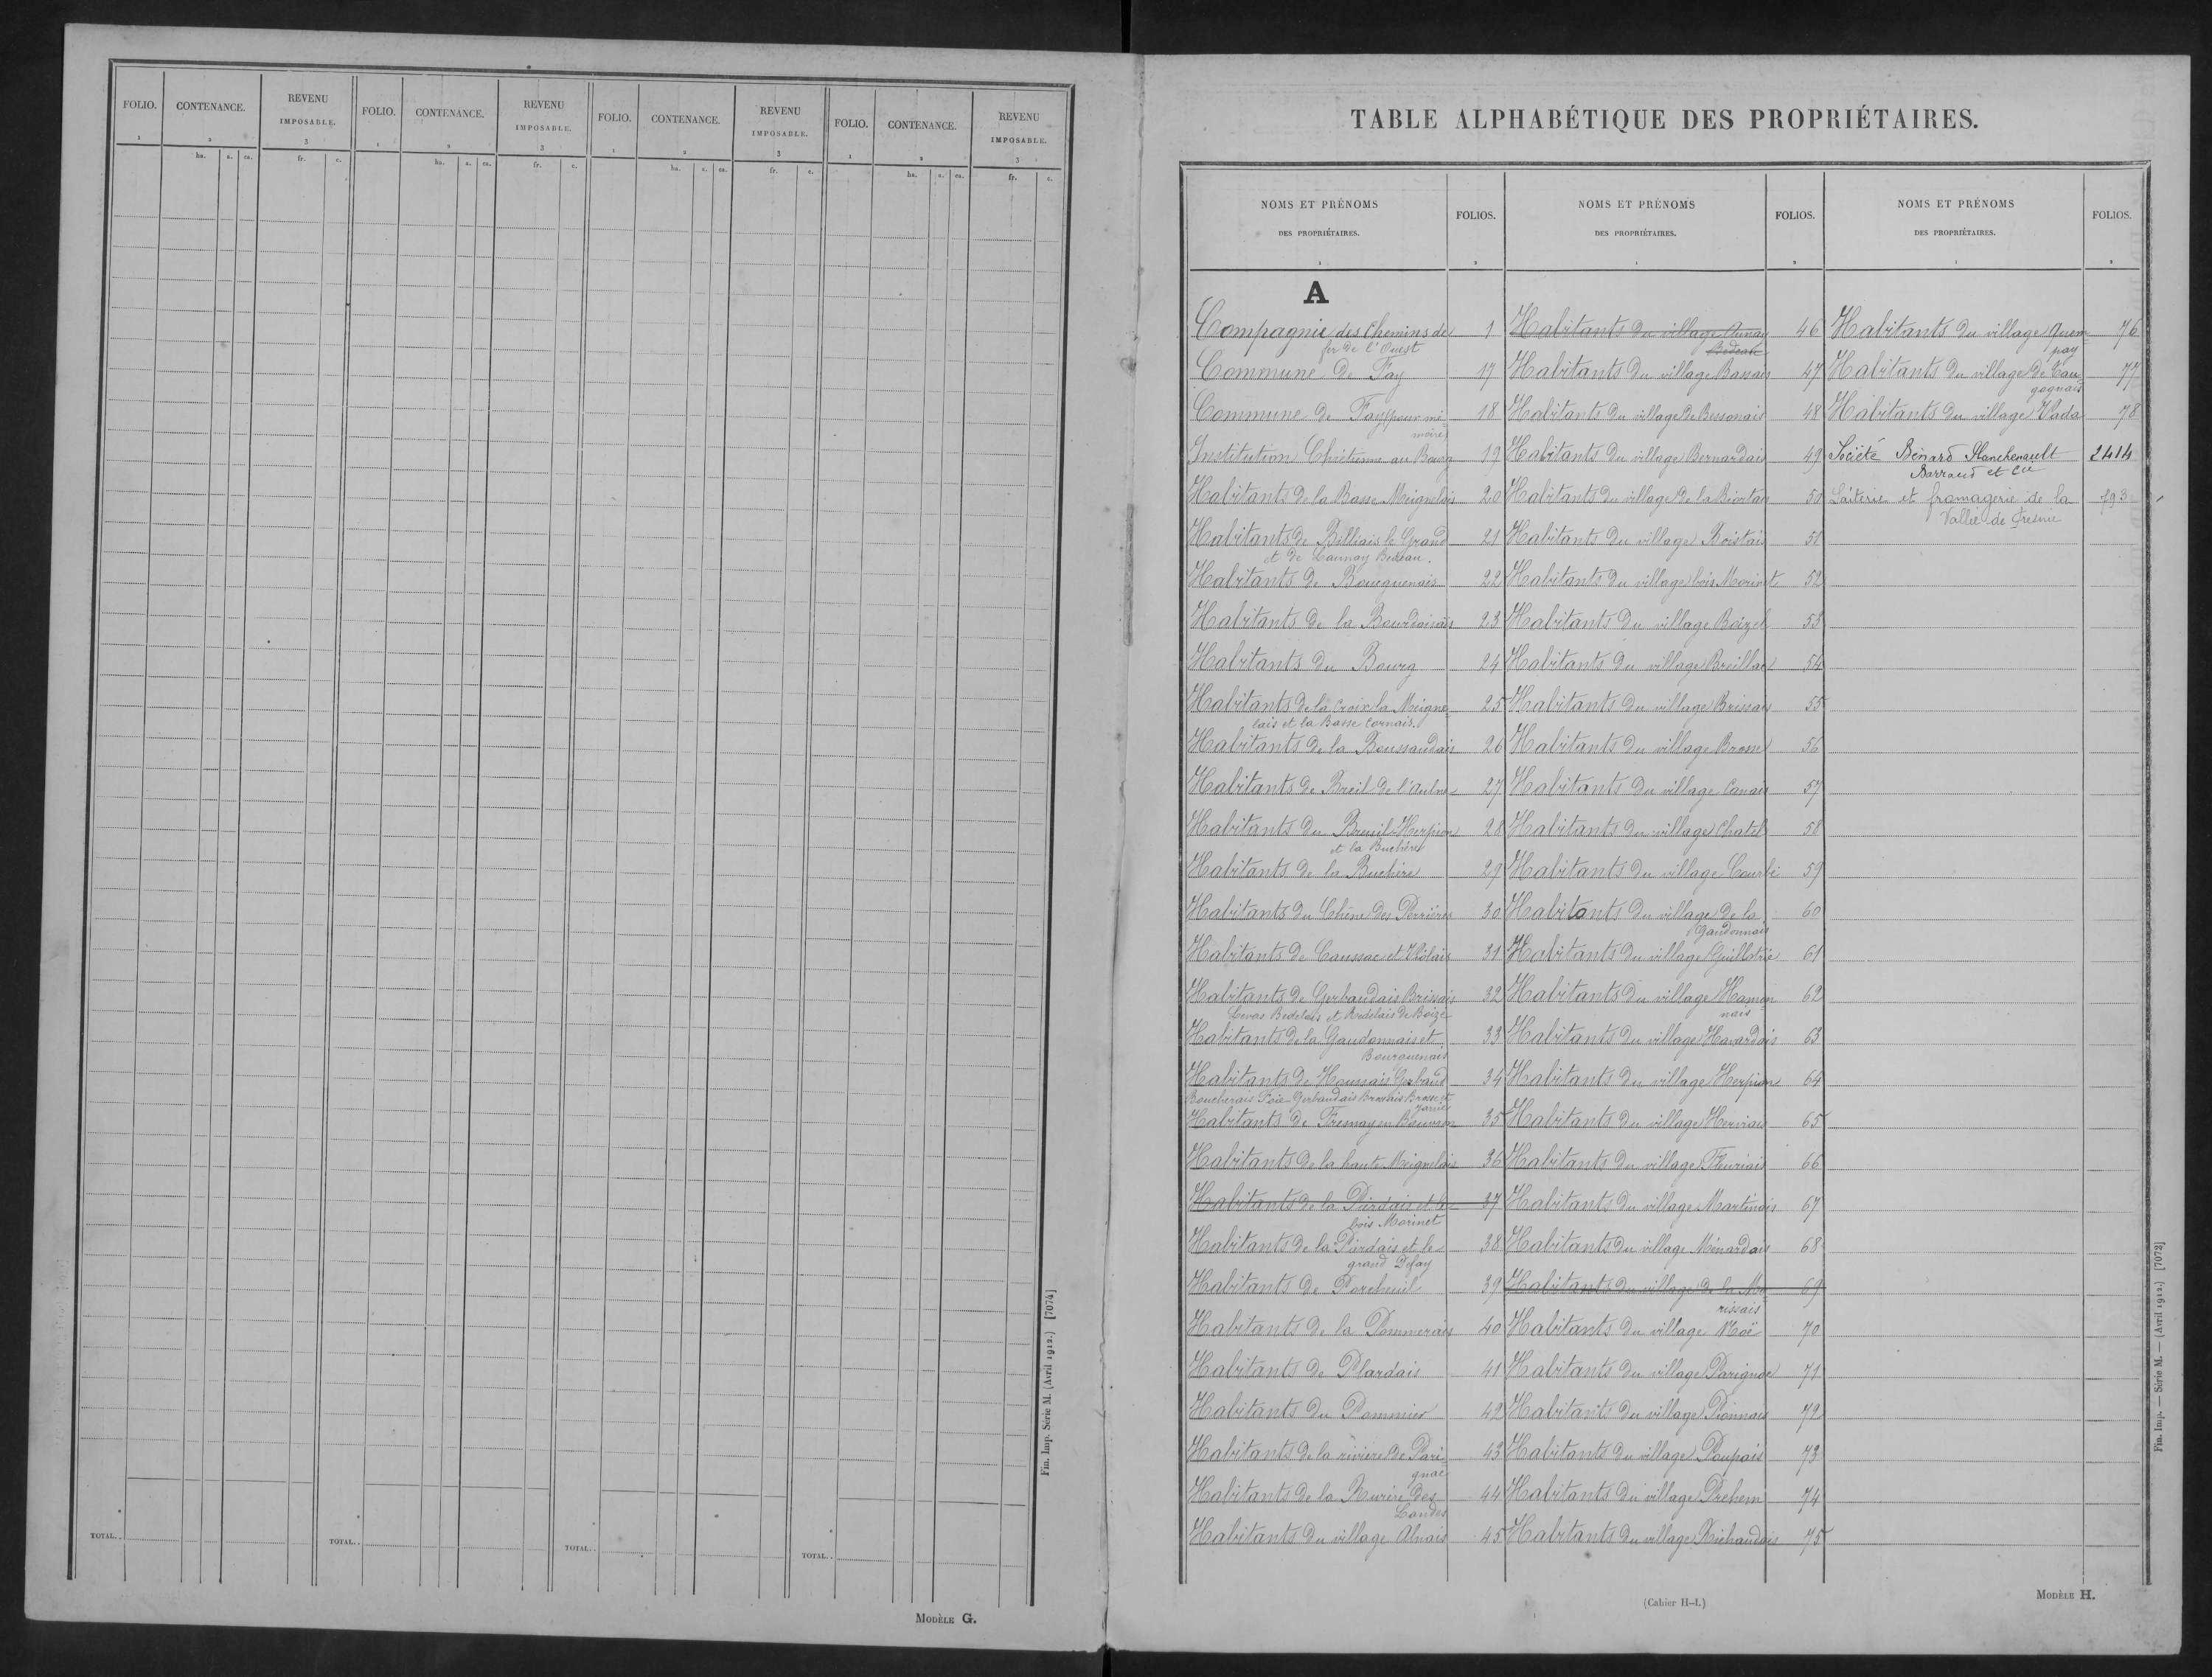 FOLIO. CONTENANCE. REVENU IMPOSABLE. FOLIO. CONTENANCE. REVENU IMPOSABLE. FOLIO. CONTENANCE. REVENU IMPOSABLE. FOLIO. CONTENANCE. REVENU IMPOSABLE.
1 2 3 1 2 3 1 2 3 1 2 3
ha. a. ca. fr. c. ha. a. ca. fr. c. ha. a. ca. fr. c. ha. a. ca. fr. c.
TOTAL.. TOTAL.. TOTAL.. TOTAL..
Fin. Imp. Série M. (Avril 1912.) [7074]
MODÈLE G.
TABLE ALPHABÉTIQUE DES PROPRIÉTAIRES.
NOMS ET PRÉNOMS DES PROPRIÉTAIRES. FOLIOS. NOMS ET PRÉNOMS DES PROPRIÉTAIRES. FOLIOS. NOMS ET PRÉNOMS DES PROPRIÉTAIRES. FOLIOS.
1 2 1 2 1 2
A
Compagnie des chemins de 1
fer de l'Ouest
Commune de Fay 17
Commune de Fay (pour mé- 18
moire)
Institution Chrétienne au Bourg 19
Habitants de la Basse Meignelais 20
Habitants de Billiais le Grand 21
et de Launay Bedeau.
Habitants de Bourguenais 22
Habitants de la Bourdinais 23
Habitants du Bourg 24
Habitants de la Croix la Meigne- 25
lais et la Basse Cornais.
Habitants de la Boussaudais 26
Habitants de Breil de l'aulne 27
Habitants du Breuil-Herpion 28
et la Buchère
Habitants de la Buchère 29
Habitants du Chêne des Perrières 30
Habitants de Caussac et 31
Habitants de Gerbaudais Brissais 32
Bedelais et Bedelais de Boizé
Habitants de la Gaudonnais et 33
Bourguenais
Habitants de Houssais Gerbaud 34
Habitants de Fremay en 35
Habitants de la haute Meignelais 36
Habitants de la Pardais et le 37
bois Morinet
Habitants de la Pardais et le 38
grand Defay
Habitants de Porcheuil 39
Habitants de la Pommerais 40
Habitants de Plardais 41
Habitants du Pommier 42
Habitants de la rivière de Pari- 43
gnac
Habitants de la Rurère des 44
Landes
Habitants du village Alnais 45
Habitants du village Aunay 46
Bedeau
Habitants du village Bassais 47
Habitants du village de Bessonais 48
Habitants du village Bernardais 49
Habitants du village de la 50
Habitants du village Boistais 51
Habitants du village bois Morinet 52
Habitants du village Boizel 53
Habitants du village Breillac 54
Habitants du village Brissais 55
Habitants du village Brosse 56
Habitants du village Canais 57
Habitants du village Chatel 58
Habitants du village Courbé 59
Habitants du village de la 60
Gaudonnais
Habitants du village Guilloterie 61
Habitants du village Hamon- 62
nais
Habitants du village Havardais 63
Habitants du village Herpion 64
Habitants du village Herviais 65
Habitants du village Fleuriais 66
Habitants du village Martinais 67
Habitants du village Ménardais 68
Habitants du village de la Mo- 69
rissais
Habitants du village Noë 70
Habitants du village Parignac 71
Habitants du village Pionnais 72
Habitants du village Poupais 73
Habitants du village Prehem 74
Habitants du village Richaudais 75
Habitants du village Quem- 76
pay
Habitants du village de Cau- 77
gognais
Habitants du village Vada 78
Société Bénard Planchenault 2414
Barraud et Cie
Laiterie et fromagerie de la 793
Vallée de
Fin. Imp. — Série M. — (Avril 1912.) [7073]
(Cahier H-I.)
MODÈLE H.